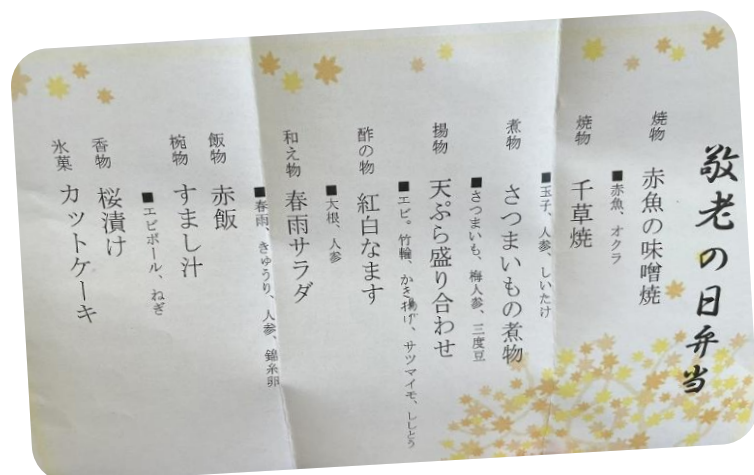 敬老の日弁当
焼物 赤魚の味噌焼
■赤魚、オクラ
焼物 千草焼
■玉子、人参、しいたけ
煮物 さつまいもの煮物
■さつまいも、梅人参、三度豆
揚物 天ぷら盛り合わせ
■エビ。竹輪、かき揚げ、サツマイモ、ししとう
酢の物 紅白なます
■大根、人参
和え物 春雨サラダ
■春雨、きゅうり、人参、錦糸卵
飯物 赤飯
椀物 すまし汁
■エビボール、ねぎ
香物 桜漬け
氷菓 カットケーキ